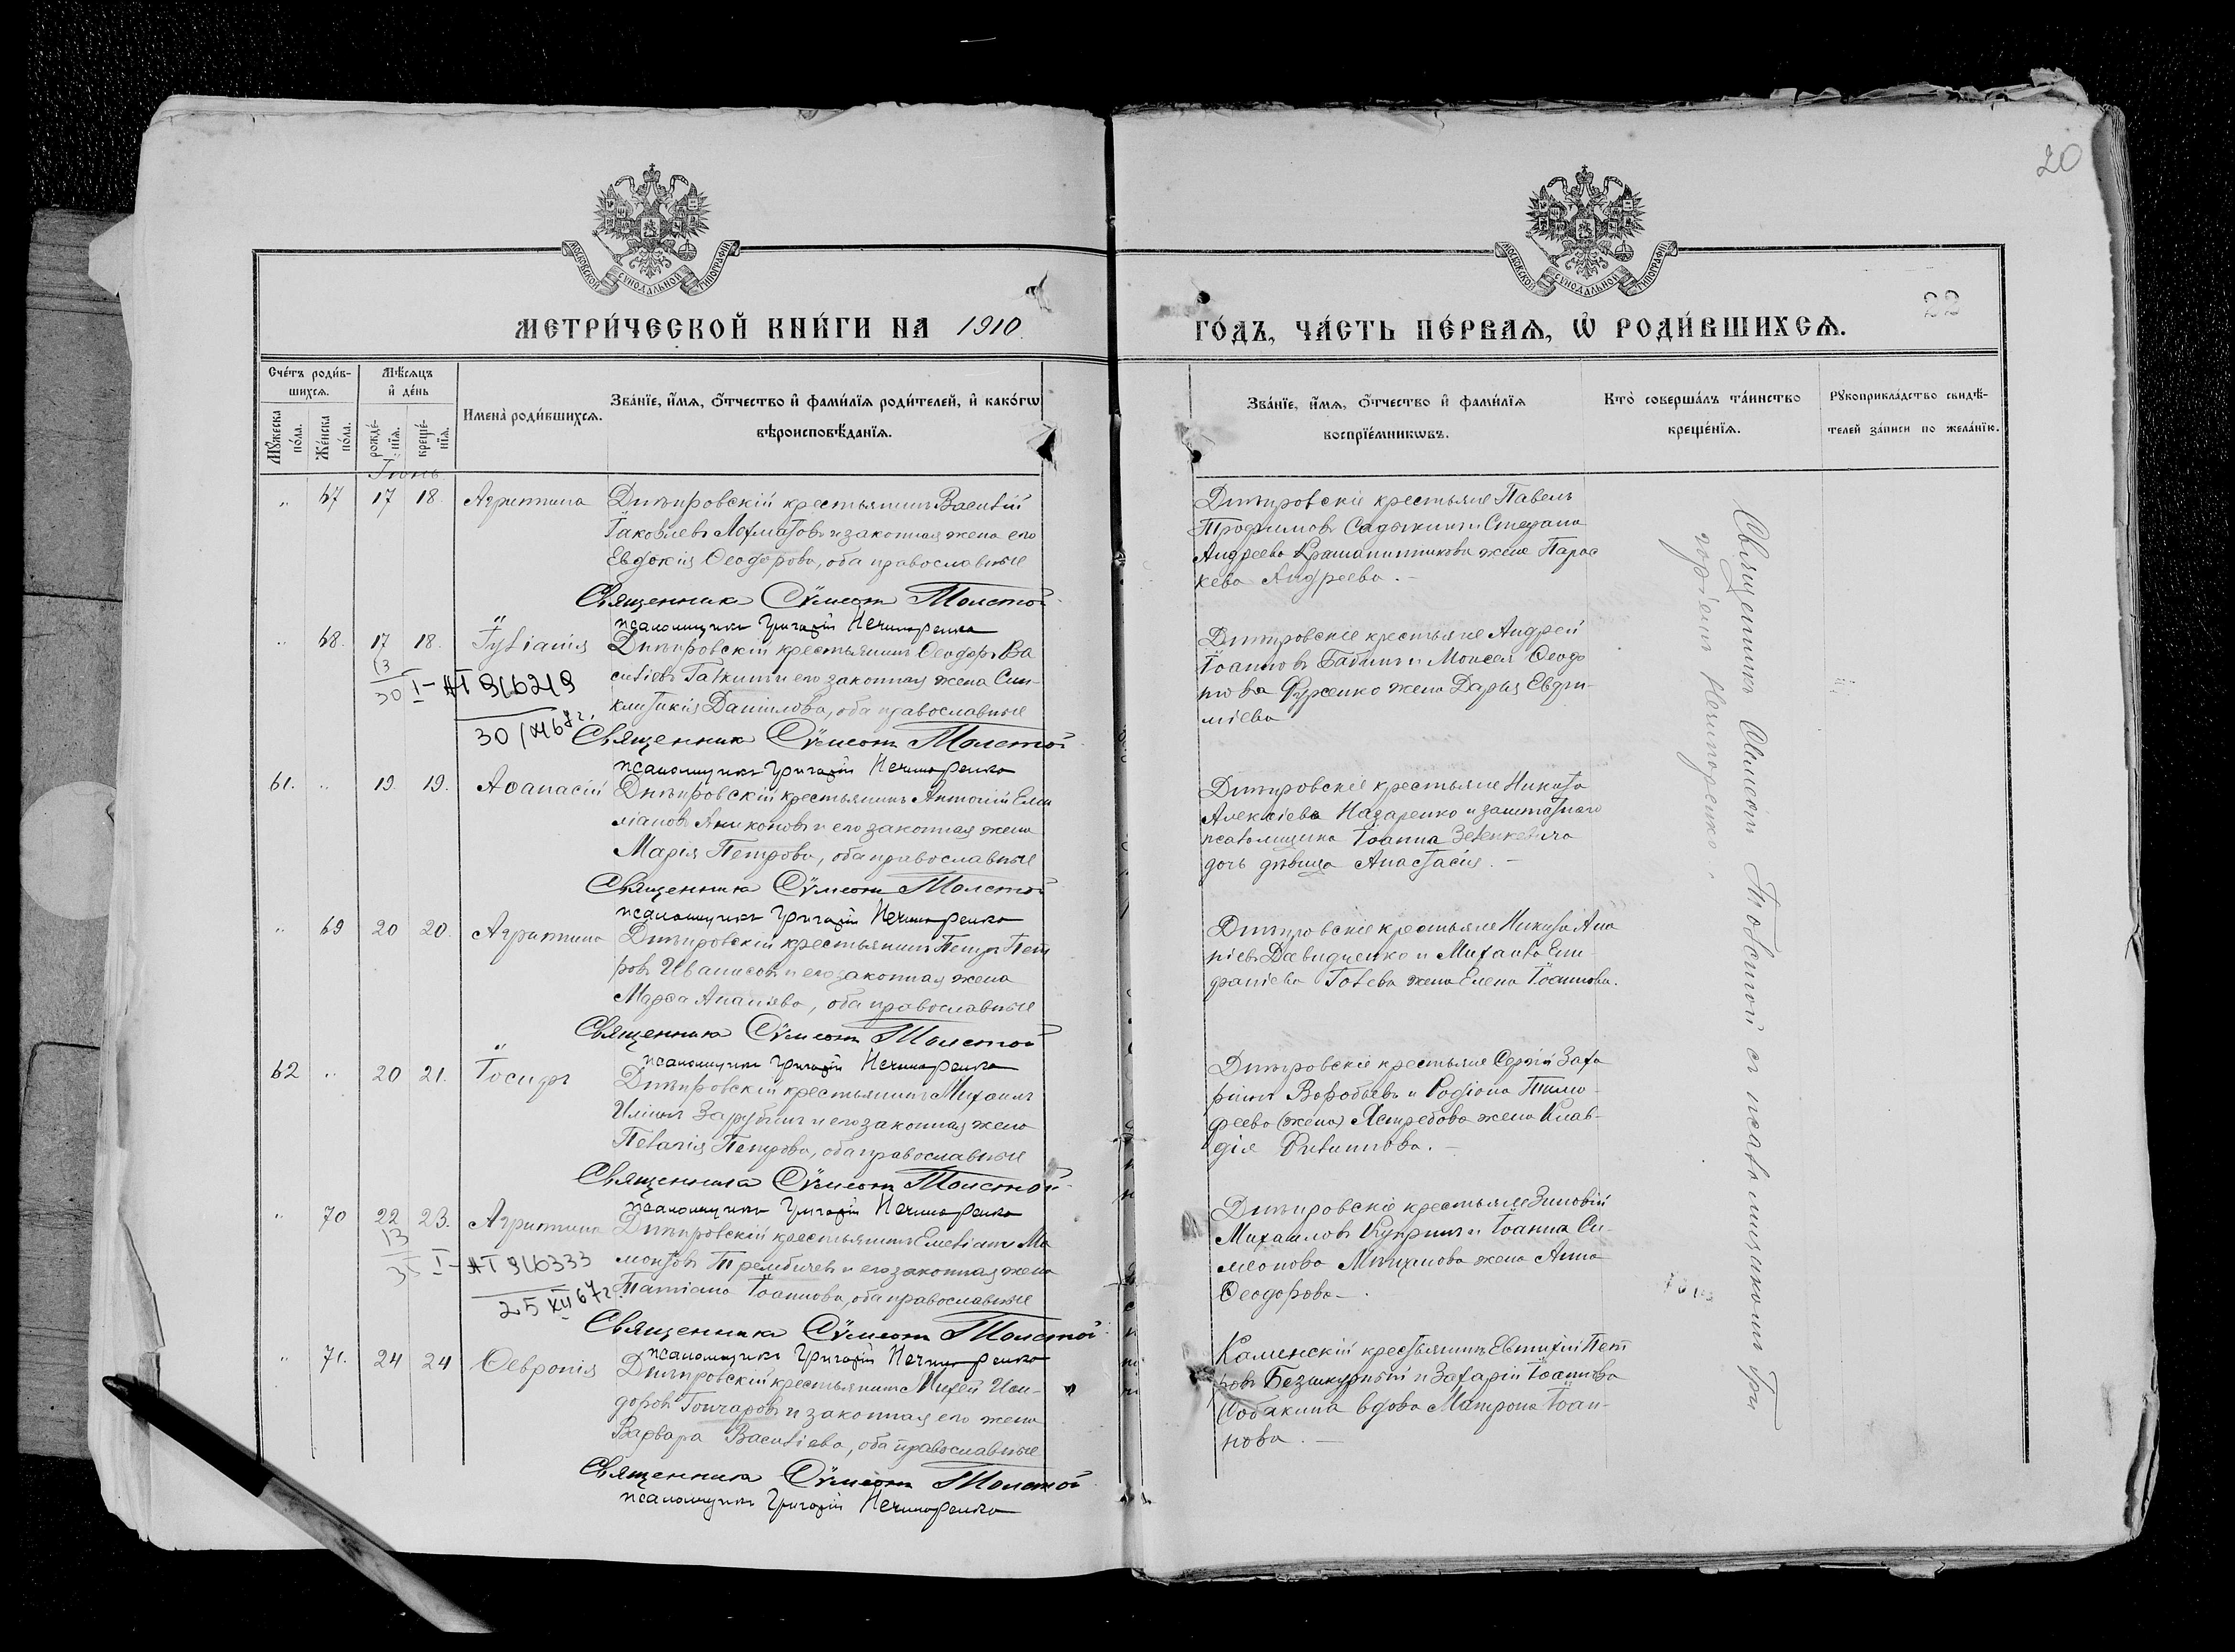 20
МОСКОВСКОЙ СУНОДАЛЬНОЙ ТИПОГРАФІИ
МОСКОВСКОЙ СУНОДАЛЬНОЙ ТИПОГРАФІИ
22
МЕТРИ́ЧЕСКОЙ КНИ́ГИ НА 1910
ГО́ДЪ, ЧА́СТЬ ПЕ́РВАѦ, Ѡ҆ РОДИ́ВШИХСѦ.
Сче́тъ роди́в-
шихсѧ.
Мꙋ́жеска
по́ла.
Же́нска
по́ла.
Мѣ́сѧцъ
и҆ де́нь
рожде́-
нїѧ.
креще́-
нїѧ.
Имена̀ роди́вшихсѧ.
Зва́нїе, и҆́мѧ, ѻ҆́тчество и҆ фами́лїѧ роди́телей, и҆ како́гѡ
вѣроисповѣ́данїѧ.
Зва́нїе, и҆́мѧ, ѻ҆́тчество и҆ фами́лїѧ
воспрїе́мникѡвъ.
Кто̀ соверша́лъ та́инство
креще́нїѧ.
Рꙋкоприкла́дство свидѣ́-
телей за́писи по жела́нїю.
Іюнь
" 67 17 18. Агриппина
Днѣпровскій крестьянинъ Василій
Іаковлевъ Лохматовъ и законная жена его
Евдокія Ѳеодорова, оба православные
Священникъ Сѵмеонъ Толстой
псаломщикъ Григорій Нечипоренко
Днѣпровскіе крестьяне Павелъ
Трофимовъ Садыкинъ и Стефана
Андреева Крашанинникова жена Парас
кева Андреева. –
" 68. 17 18. Іуліанія
13
30 I – АТ 916219
30/XI 67 г.
Днѣпровскій крестьянинъ Ѳеодоръ Ва
силіевъ Галкинъ и его законная жена Син-
клитикія Даніилова, оба православные
Священникъ Сѵмеонъ Толстой
псаломщикъ Григорій Нечипоренко
Днѣпровскіе крестьяне Андрей
Іоанновъ Бабинъ и Моисея Ѳеодо
това Фурсенко жена Дарья Евфи-
міева
61. " 19. 19. Аѳанасій
Днѣпровскій крестьянинъ Антоній Еми
ліановъ Аниконовъ и его законная жена
Марія Петрова, оба православные
Священникъ Сѵмеонъ Толстой
псаломщикъ Григорій Нечипоренко
Днѣпровскіе крестьяне Никита
Алексіевъ Назаренко и заштатнаго
псаломщика Іоанна Зеленкевича
дочь дѣвица Анастасія. –
" 69 20 20. Агриппина
Днѣпровскій крестьянинъ Петръ Пет
ровъ Иванисовъ и его законная жена
Марѳа Ананіева, оба православные
Священникъ Сѵмеонъ Толстой
псаломщикъ Григорій Нечипоренко
Днѣпровскіе крестьяне Никита Ана
ніевъ Давидченко и Михаила Епи-
фаніева Голева жена Елена Іоаннова.
62 " 20 21. Іосифъ
Днѣпровскій крестьянинъ Михаилъ
Иліинъ Зарубинъ и его законная жена
Пелагія Петрова, оба православные
Священникъ Сѵмеонъ Толстой
псаломщикъ Григорій Нечипоренко
Днѣпровскіе крестьяне Сергій Заха
ріинъ Воробьевъ и Родіона Тимо-
феева (жена) Ястребова жена Клав-
дія Филиппова. –
" 70 22 23. Агриппина
13
I – АТ 916333
25 XII 67 г.
Днѣпровскій крестьянинъ Емеліанъ Ма
монтовъ Трембичевъ и его законная жена
Татіана Іоаннова, оба православные
Священникъ Сѵмеонъ Толстой
псаломщикъ Григорій Нечипоренко
Днѣпровскіе крестьяне Зиновій
Михаиловъ Купринъ и Іоанна Си-
меонова жена Анна
Ѳеодорова –.
" 71. 24 24 Ѳевронія
Днѣпровскій крестьянинъ Михей Иси-
доровъ Гончаровъ и законная его жена
Варвара Василіева, оба православные
Священникъ Сѵмеонъ Толстой
псаломщикъ Григорій Нечипоренко
Каменскій крестьянинъ Евтихій Пет
ровъ Безшкурный и Захарія Іоаннова
Собакина вдова Матрона Іоан-
нова. –
Священникъ Симеонъ Толстой съ псаломщикомъ Гри
горіемъ Нечипоренко.